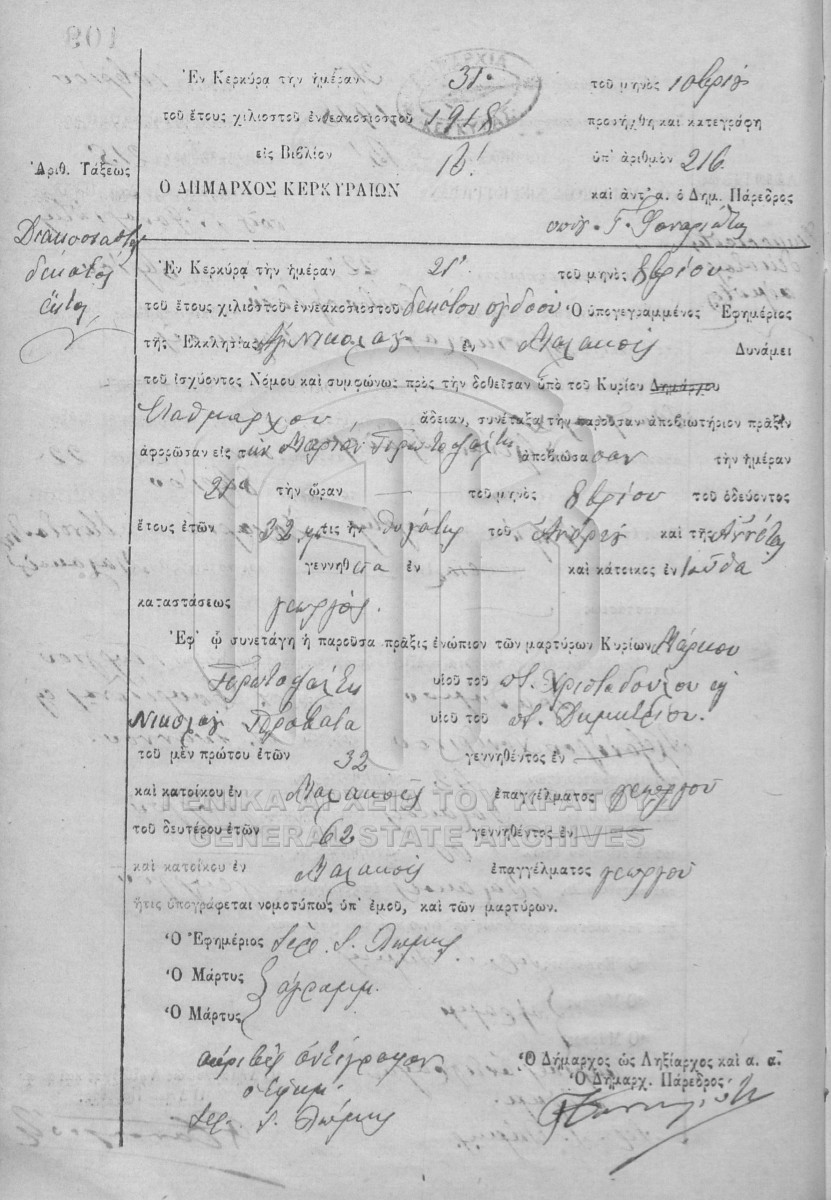 109
Ἐν Κερκύρᾳ τὴν ἡμέραν 31. τοῦ μηνὸς 10βρίου
τοῦ ἔτους χιλιοστοῦ ἐνθεακοσιοστοῦ 1918 προσήχθη καὶ κατεγράφη
εἰς Βιβλίον Β! ὑπ' ἀριθμὸν 216
Ἀριθ. Τάξεως
Ὁ ΔΗΜΑΡΧΟΣ ΚΕΡΚΥΡΑΙΩΝ καὶ ἀντ' α. ὁ Δημ. Πάρεδρος
Διακοσιοστὸς
δέκατος
ἕκτος
Ἐν Κερκύρᾳ τὴν ἡμέραν 21 τοῦ μηνὸς 8βρίου
τοῦ ἔτους χιλιοστοῦ ἐννεακοσιοστοῦ δεκάτου ὀγδόου Ὁ ὑπογεγραμμένος Ἐφημέριος
τῆς Ἐκκλησίας Ἁγ. Νικολάου ἐν Δυνάμει
τοῦ ἰσχύοντος Νόμου καὶ συμφώνως πρὸς τὴν δοθεῖσαν ὑπὸ τοῦ Κυρίου Δημάρχου
Σταθμάρχου ἄδειαν, συνέταξα τὴν παροῦσαν ἀποβιωτήριον πρᾶξιν
ἀφορῶσαν εἰς τὴν Μαρίαν ἀποβιώσασαν τὴν ἡμέραν
21η τὴν ὥραν — τοῦ μηνὸς 8βρίου τοῦ ὁδεύοντος
ἔτους ἐτῶν 32 ἥτις ἦν θυγάτηρ τοῦ Ἀνδρέα καὶ τῆς Ἀννέτας
γεννηθεῖσα ἐν — καὶ κάτοικος ἐν
καταστάσεως γεωργός.
Ἐφ' ᾧ συνετάγη ἡ παροῦσα πρᾶξις ἐνώπιον τῶν μαρτύρων Κυρίων Μάρκου
υἱοῦ τοῦ π. Χριστοδούλου καὶ
Νικολάου Προβατᾶ υἱοῦ τοῦ π. Δημητρίου.
τοῦ μὲν πρώτου ἐτῶν 32 γεννηθέντος ἐν —
καὶ κατοίκου ἐν ἐπαγγέλματος γεωργοῦ
ΓΕΝΙΚΑ ΑΡΧΕΙΑ ΤΟΥ ΚΡΑΤΟΥΣ
τοῦ δευτέρου ἐτῶν 62 γεννηθέντος ἐν —
GENERAL STATE ARCHIVES
καὶ κατοίκου ἐν ἐπαγγέλματος γεωργοῦ
ἥτις ὑπογράφεται νομοτύπως ὑπ' ἐμοῦ, καὶ τῶν μαρτύρων.
Ὁ Ἐφημέριος Ἱερ.
Ὁ Μάρτυς ἀγράμμ.
Ὁ Μάρτυς
ἀκριβὲς ἀντίγραφον Ὁ Δήμαρχος ὡς Ληξίαρχος καὶ α. α.
ὁ Ἐφημ. Ὁ Δημαρχ. Πάρεδρος
Ἱερ.